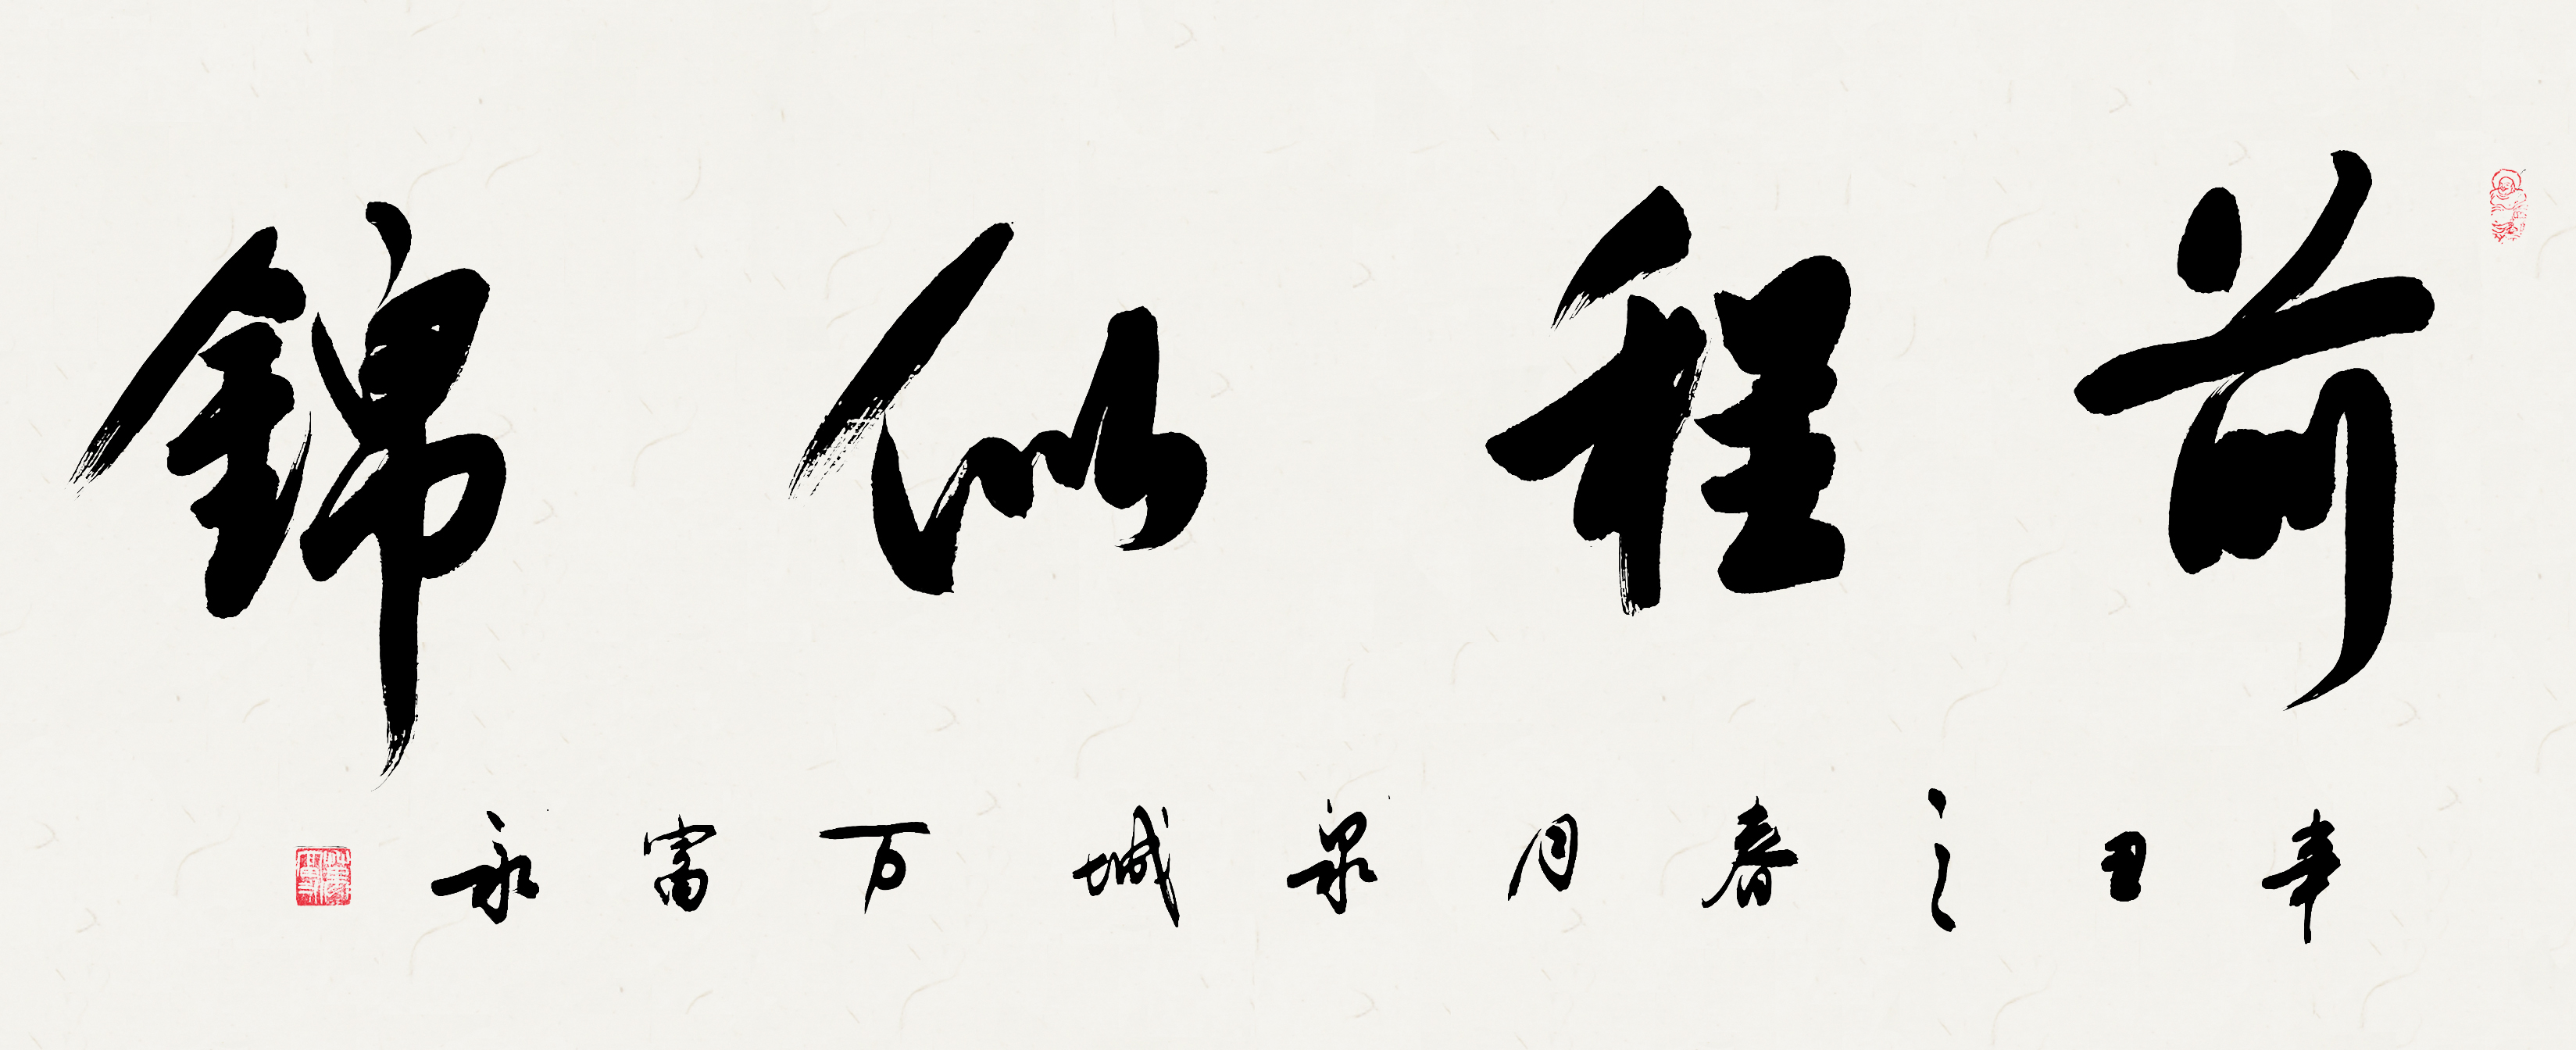 前程似錦
辛丑之春月泉城万富永